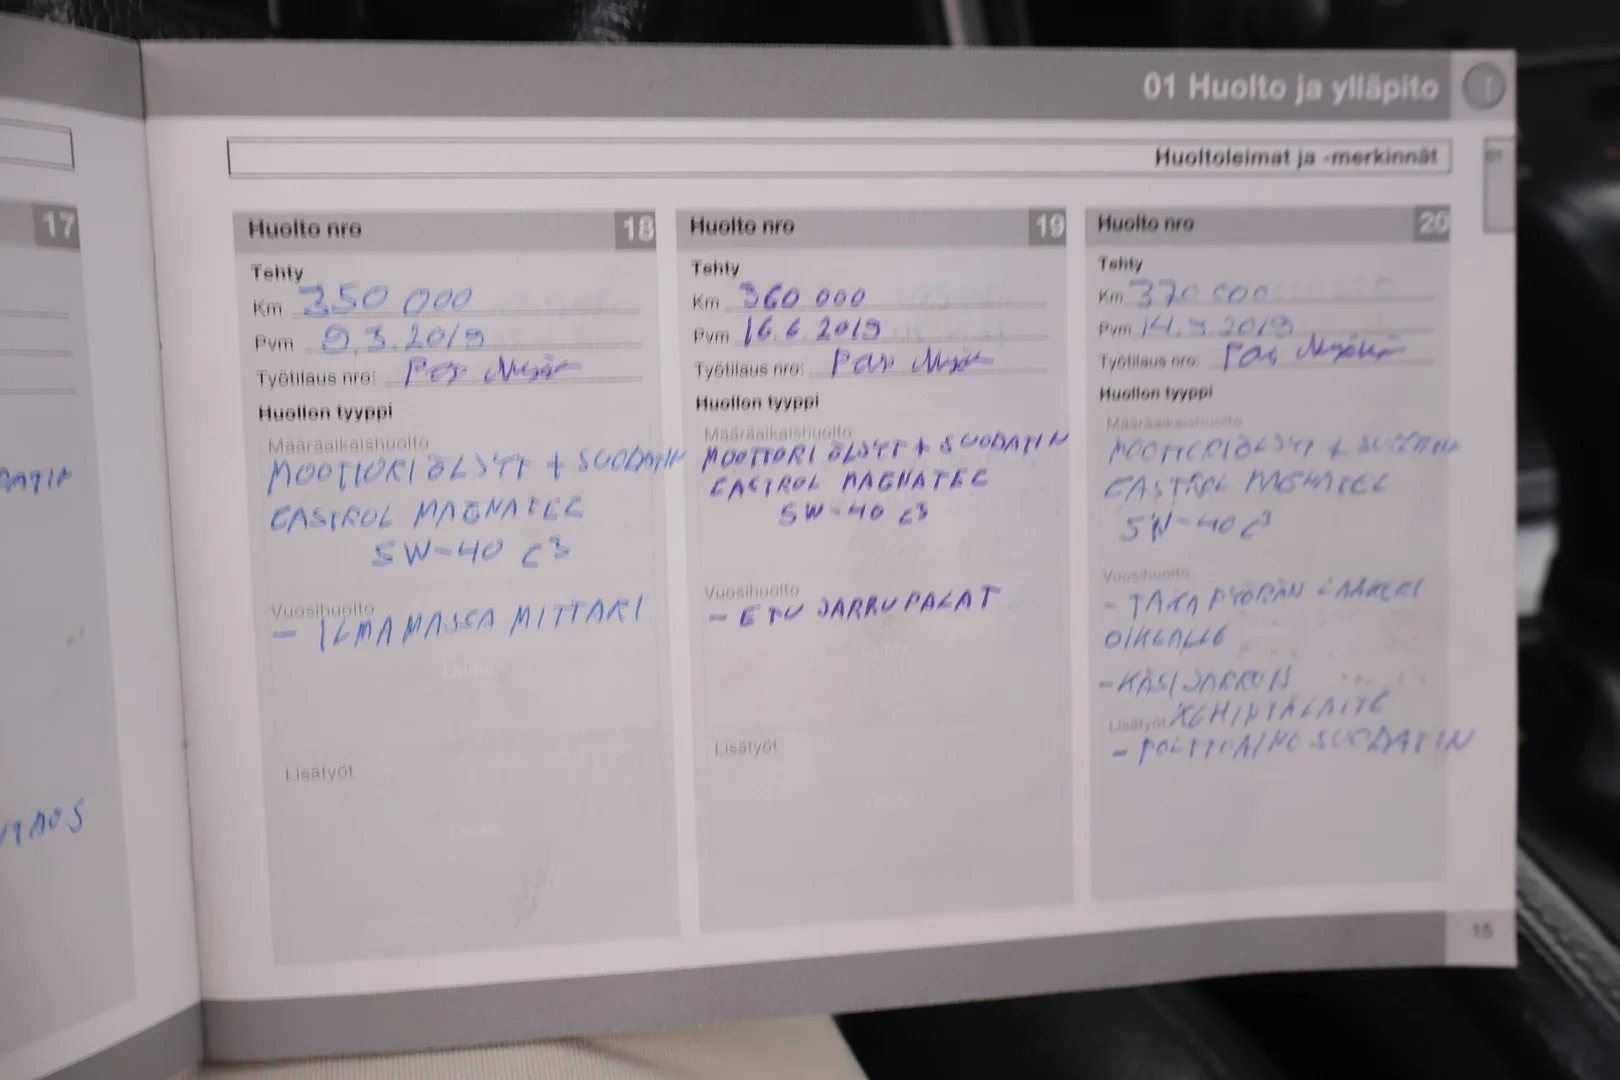 01 Huolto ja ylläpito
Huoltoleimat ja -merkinnät
01
17
DATIN
Huolto nro 18
Tehty
Km 350 000
Pvm 9.3.2019
Työtilaus nro:
Huollon tyyppi
Määräaikaishuolto
MOOTTORI ÖLJYT + SUODATIN
CASTROL MAGNATEC
5W-40 C3
Vuosihuolto
- ILMAMASSA MITTARI
Leima
Lisätyöt
Leima
Huolto nro 19
Tehty
Km 360 000
Pvm 16.6.2019
Työtilaus nro:
Huollon tyyppi
Määräaikaishuolto
MOOTTORI ÖLJYT + SUODATIN
CASTROL MAGNATEC
5W-40 C3
Vuosihuolto
- ETU JARRUPALAT
Leima
Lisätyöt
Leima
Huolto nro 20
Tehty
Km 370 000
Pvm 14.9.2019
Työtilaus nro:
Huollon tyyppi
Määräaikaishuolto
MOOTTORI ÖLJYT + SUODATIN
CASTROL MAGNATEC
5W-40 C3
Vuosihuolto
- TAKA PYÖRÄN LAAKERI
OIKEALLE
- KÄSIJARRUN
Lisätyöt KEHINTÄLAITE
- POLTTOAINE SUODATIN
15